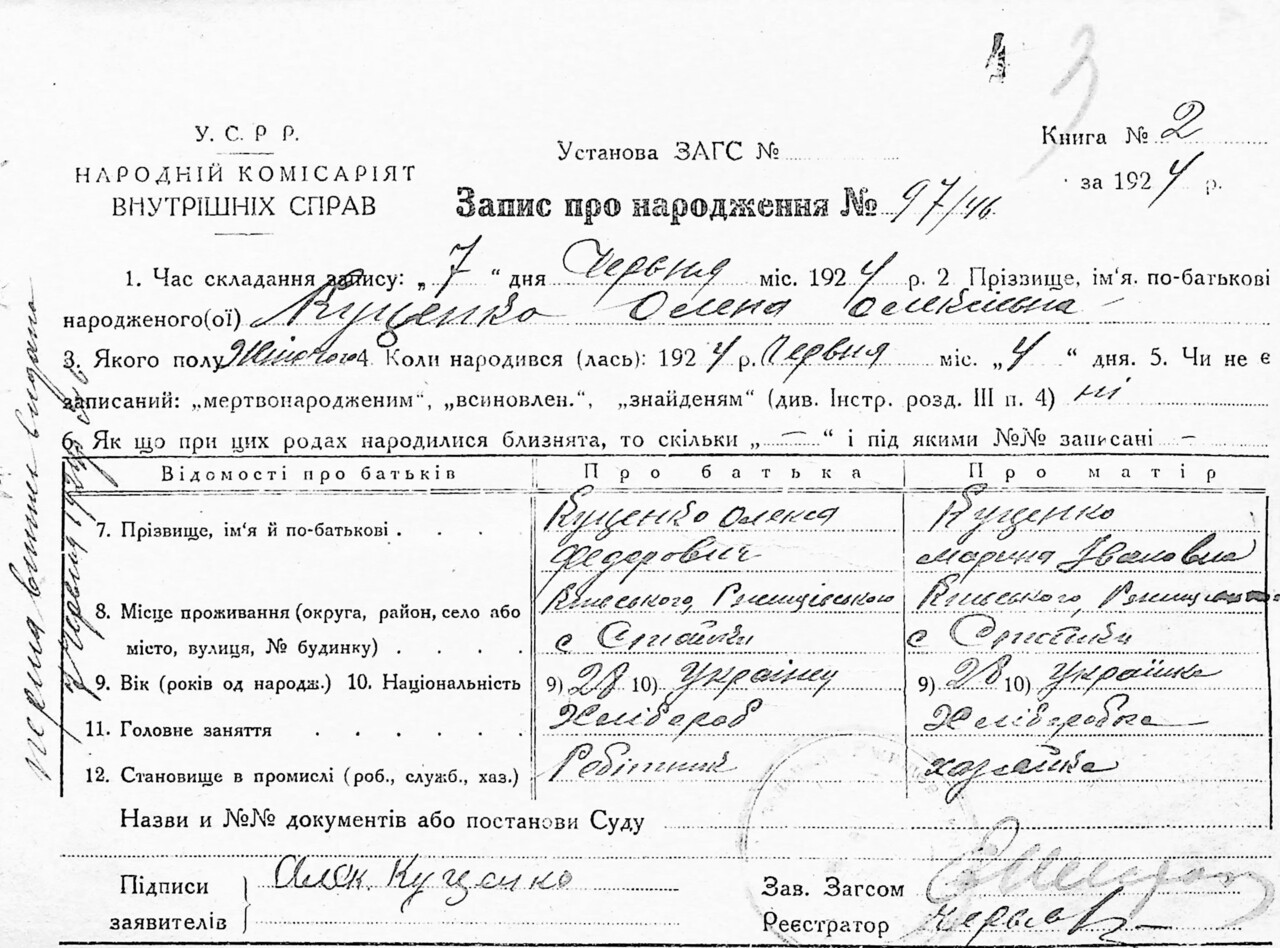 4
3
У. С. Р Р.
НАРОДНІЙ КОМІСАРІЯТ
ВНУТРІШНІХ СПРАВ
Установа ЗАГС №
Книга № 2
за 1924 р.
Запис про народження № 97/46
1. Час складання запису: „7“ дня Червня міс. 1924 р. 2. Прізвище, ім'я. по-батькові
народженого(ої) Куценко Олена Олексіївна
3. Якого полу Жіночого 4. Коли народився (лась): 1924 р. Червня міс. „4“ дня. 5. Чи не є
записаний: „мертвонародженим“, „всиновлен.“, „знайденям“ (див. Інстр. розд. III п. 4) ні
6. Як що при цих родах народилися близнята, то скільки „—“ і під якими №№ записані —
Відомості про батьків Про батька Про матір
7. Прізвище, ім'я й по-батькові . . . Куценко Олекса Куценко
Федорович Марина Івановна
8. Місце проживання (округа, район, село або Київського, Ржищівського Київського,
місто, вулиця, № будинку) . . . . с Стайки с Стайки
9. Вік (років од народж.) 10. Національність 9) 28 10) Українец 9) 28 10) Українка
11. Головне заняття . . . . . . Хлібороб Хліборобка
12. Становище в промислі (роб., служб., хаз.) Робітник хазяйка
Назви и №№ документів або постанови Суду
Підписи
заявителів
Алек. Куценко
Зав. Загсом
Реєстратор
перша випись видана
7 Червня 1924